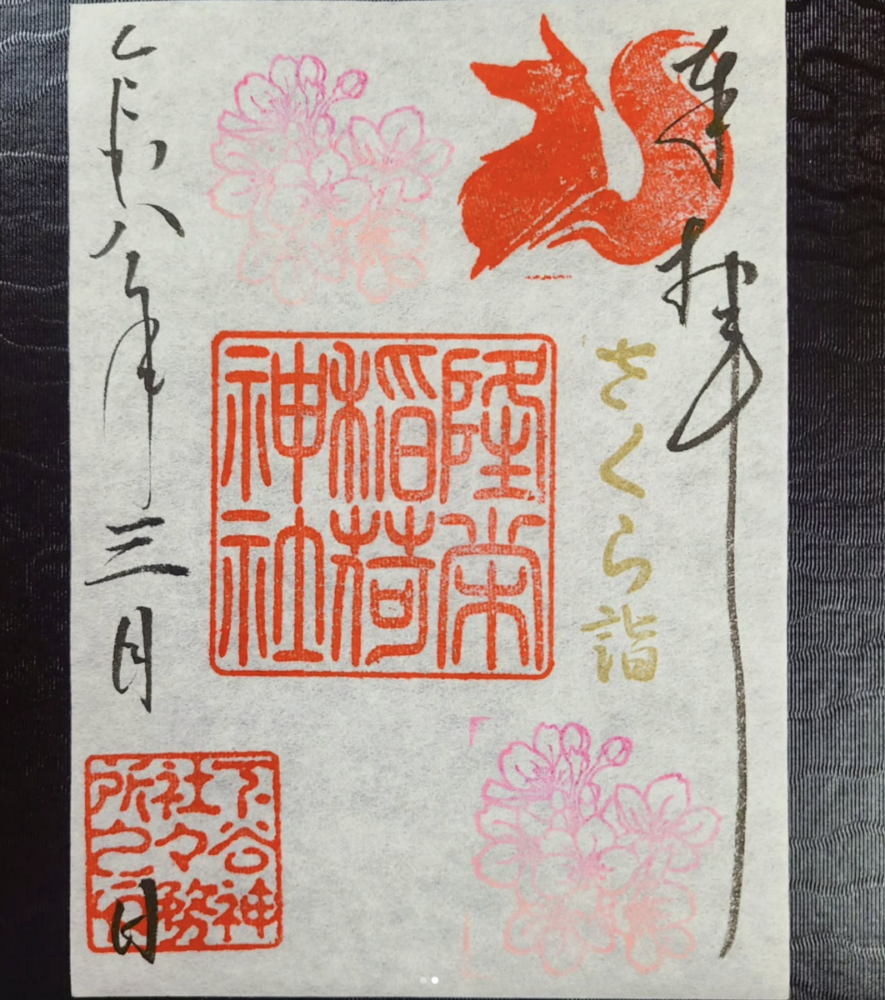 奉拝
さくら詣
隆栄
稲荷
神社
令和八年三月 日
下谷神
社々務
所之印